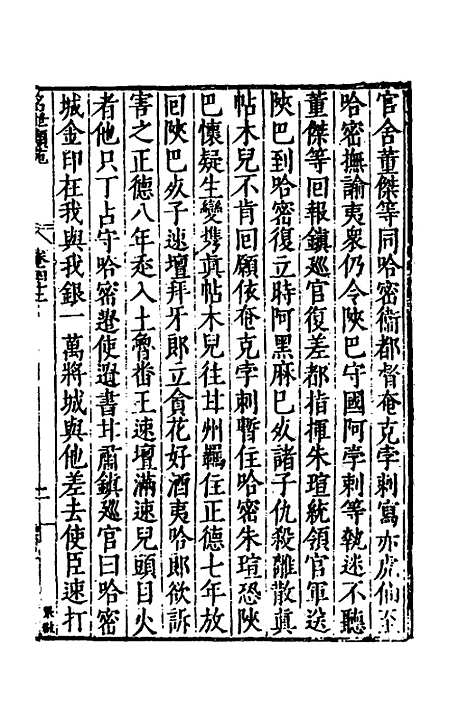 官舍董傑等同哈密衛都督奄克孛剌寫亦虎仙至
哈密撫諭夷衆仍令陝巴守國阿孛剌等執迷不聽
董傑等回報鎮廵官復差都指揮朱瑄統領官軍送
陝巴到哈密復立時阿黑麻已故諸子仇殺離散真
帖木兒不肯回願依奄克孛剌暫住哈密朱瑄恐陝
巴懷疑生變携真帖木兒往甘州羈住正德七年放
回陝巴故子速壇拜牙郎立貪花好酒夷哈郎欲訴
害之正德八年丞入土魯畨王速壇滿速兒頭目火
者他只丁占守哈密遣使遞書甘肅鎮廵官曰哈密
城金印在我與我銀一萬將城與他差去使臣速打
名世類苑
卷四十三